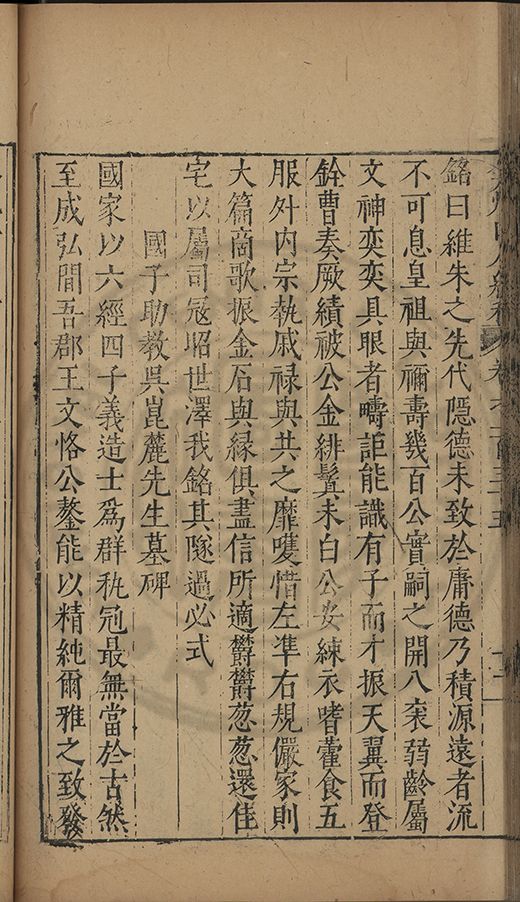 銘曰維朱之先代隱德未致於庸德乃積源遠者流
不可息皇祖與禰壽幾百公實嗣之開八袠弱齡屬
文神奕奕具眼者疇詎能識有子而才振天翼而登
銓曹奏厥績被公金緋鬂未白公安練衣嗜藿食五
服外內宗執戚祿與共之靡嘆惜左準右規儼家則
大篇商歌振金石與緣俱盡信所適欝欝葱葱還佳
宅以屬司冦昭世澤我銘其隧過必式
國子助教吳崑麓先生墓碑
國家以六經四子義造士爲群秇冠最無當於古然
至成弘間吾郡王文恪公鏊能以精純爾雅之致發